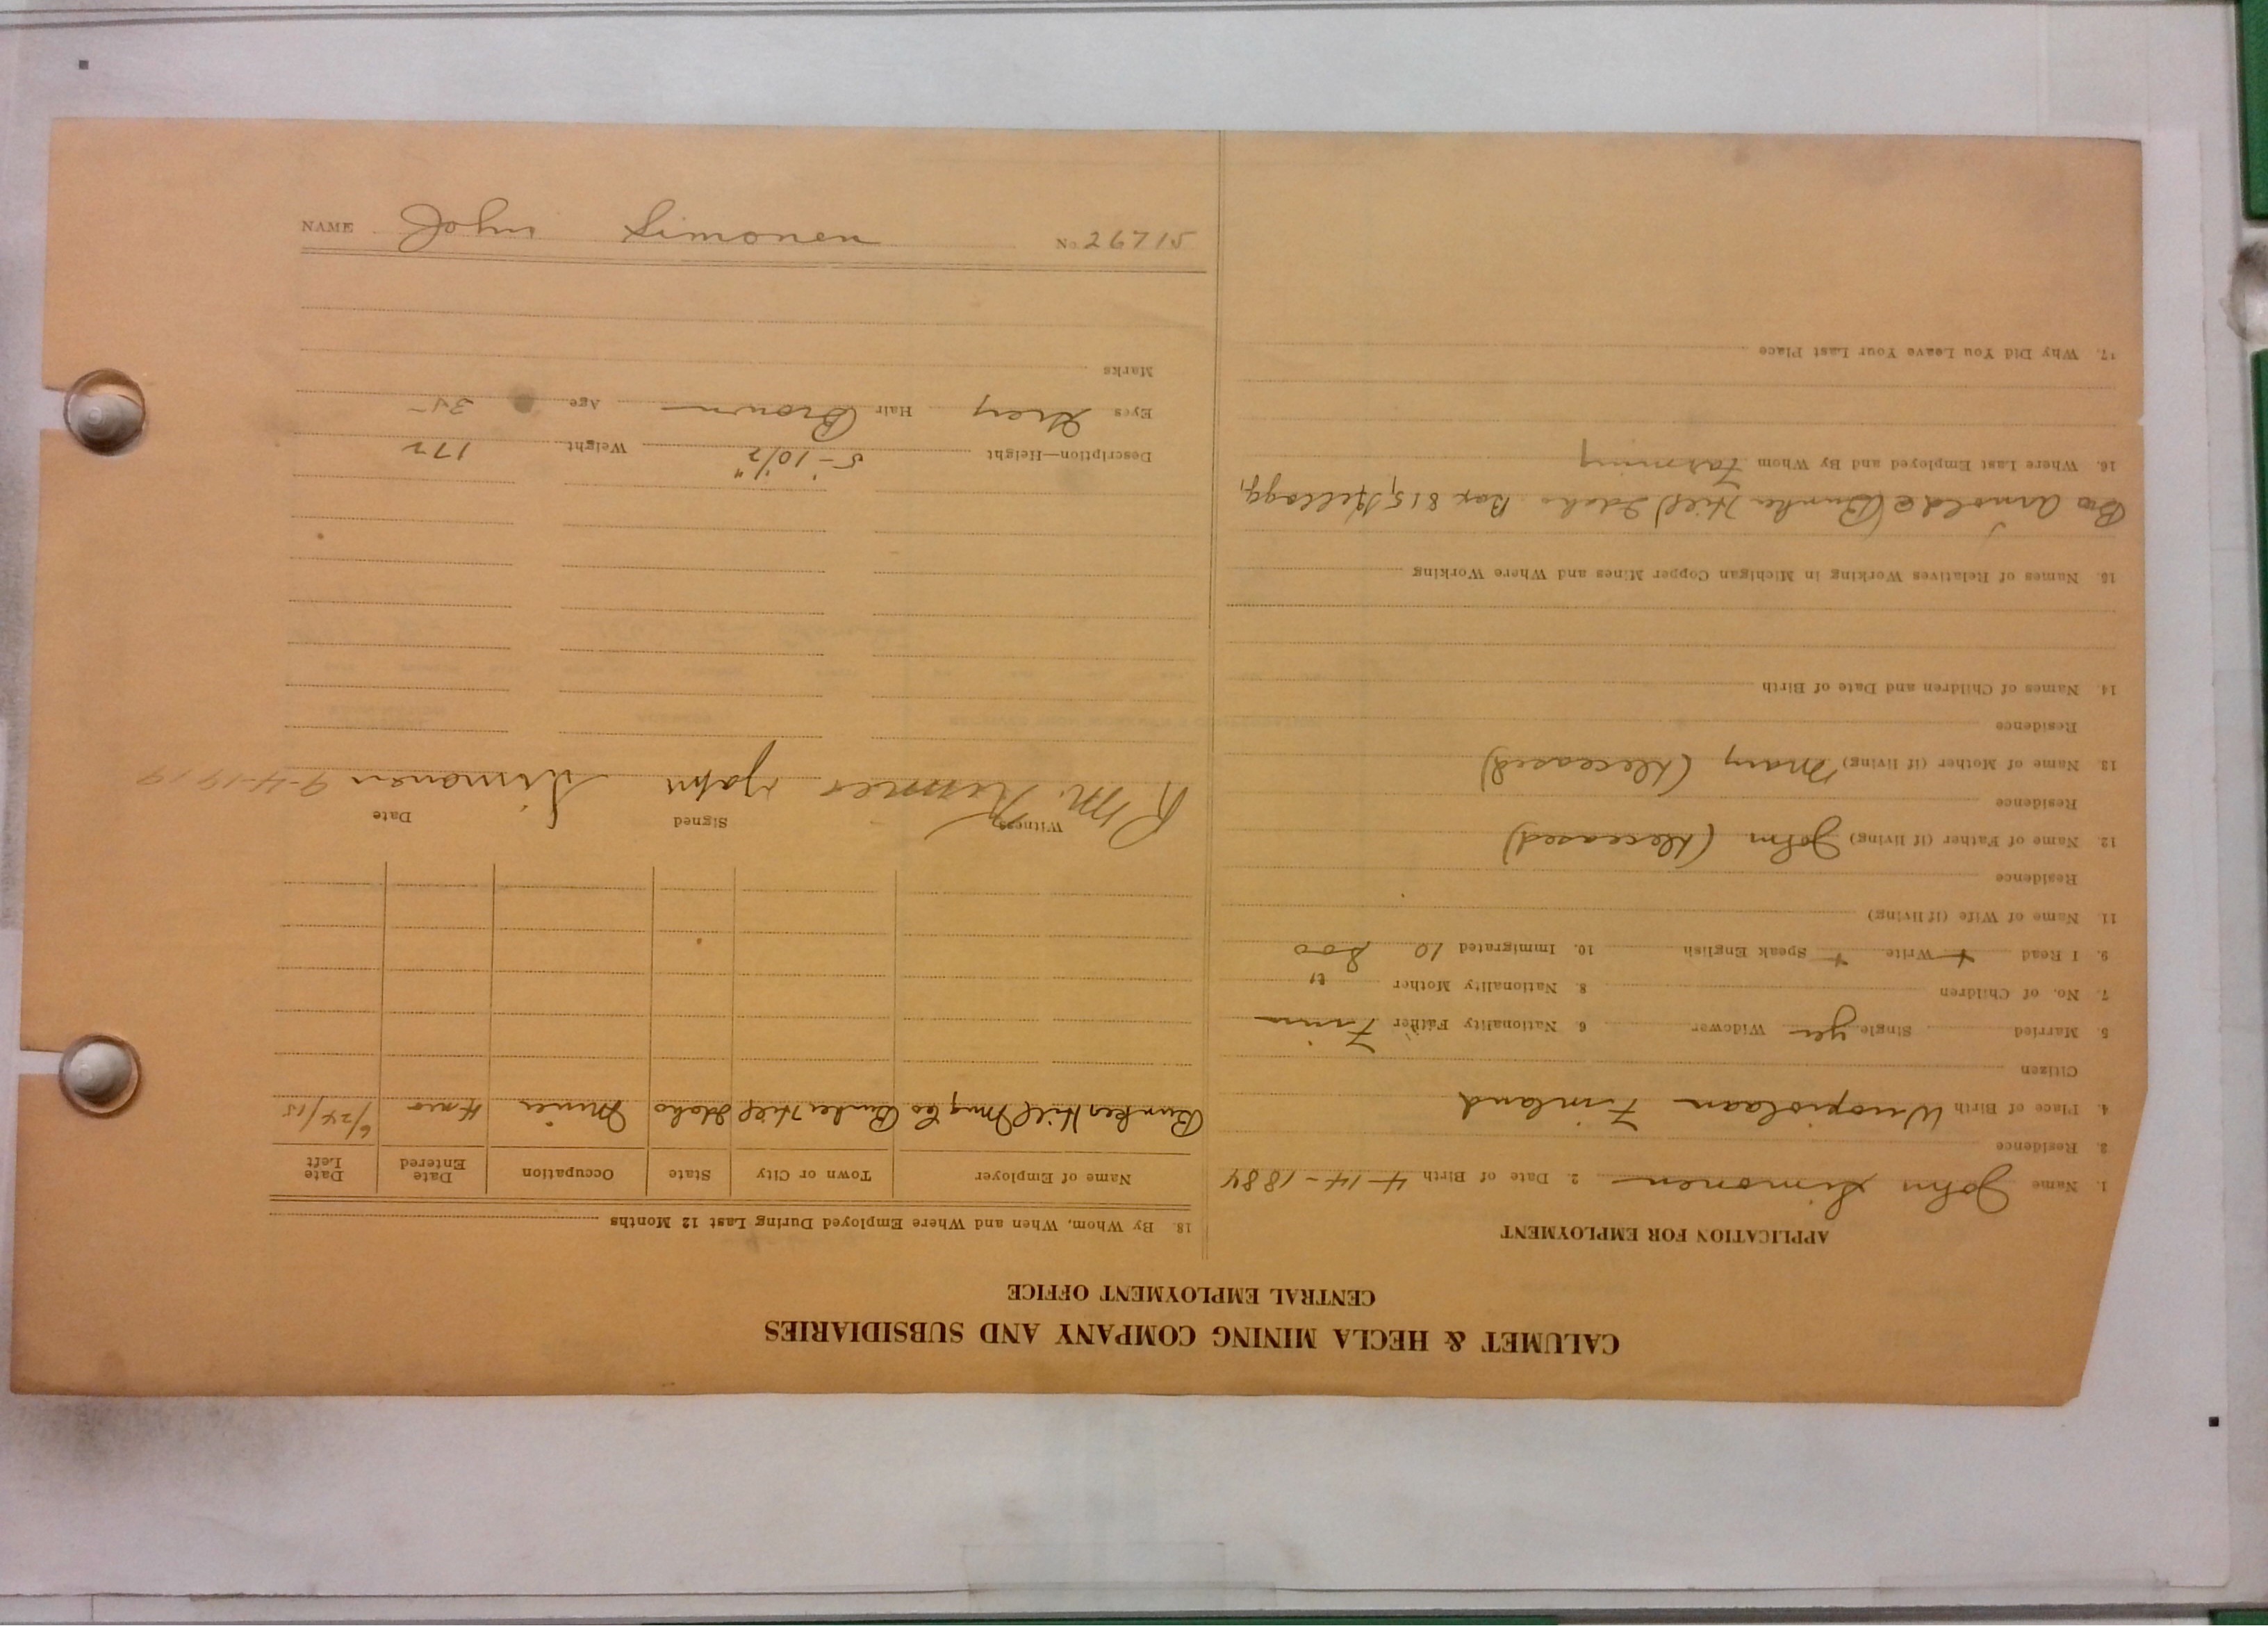 CALUMET & HECLA MINING COMPANY AND SUBSIDIARIES
CENTRAL EMPLOYMENT OFFICE
APPLICATION FOR EMPLOYMENT
1. Name John Simonen 2. Date of Birth 4-14-1884
3. Residence
4. Place of Birth Finland
Citizen
5. Married Single yes Widower 6. Nationality Father Finn
7. No. of Children 8. Nationality Mother "
9. I Read + Write + Speak English 10. Immigrated
11. Name of Wife (if living)
Residence
12. Name of Father (if living) John (deceased)
Residence
13. Name of Mother (if living) Mary (deceased)
Residence
14. Names of Children and Date of Birth
15. Names of Relatives Working in Michigan Copper Mines and Where Working
Bro Arnold (Bunker Hill) Idaho Box 815, Kellogg,
16. Where Last Employed and By Whom Farming
17. Why Did You Leave Your Last Place
18. By Whom, When and Where Employed During Last 12 Months
Name of Employer Town or City State Occupation Date Entered Date Left
Bunker Hill Mng Co Bunker Hill Idaho Miner 4 mo 6/24/15
Witness Signed Date
R. M. John Simonen 9-4-1919
Description—Height 5'-10 1/2" Weight 172
Eyes Grey Hair Brown Age 35
Marks
NAME John Simonen No. 26715